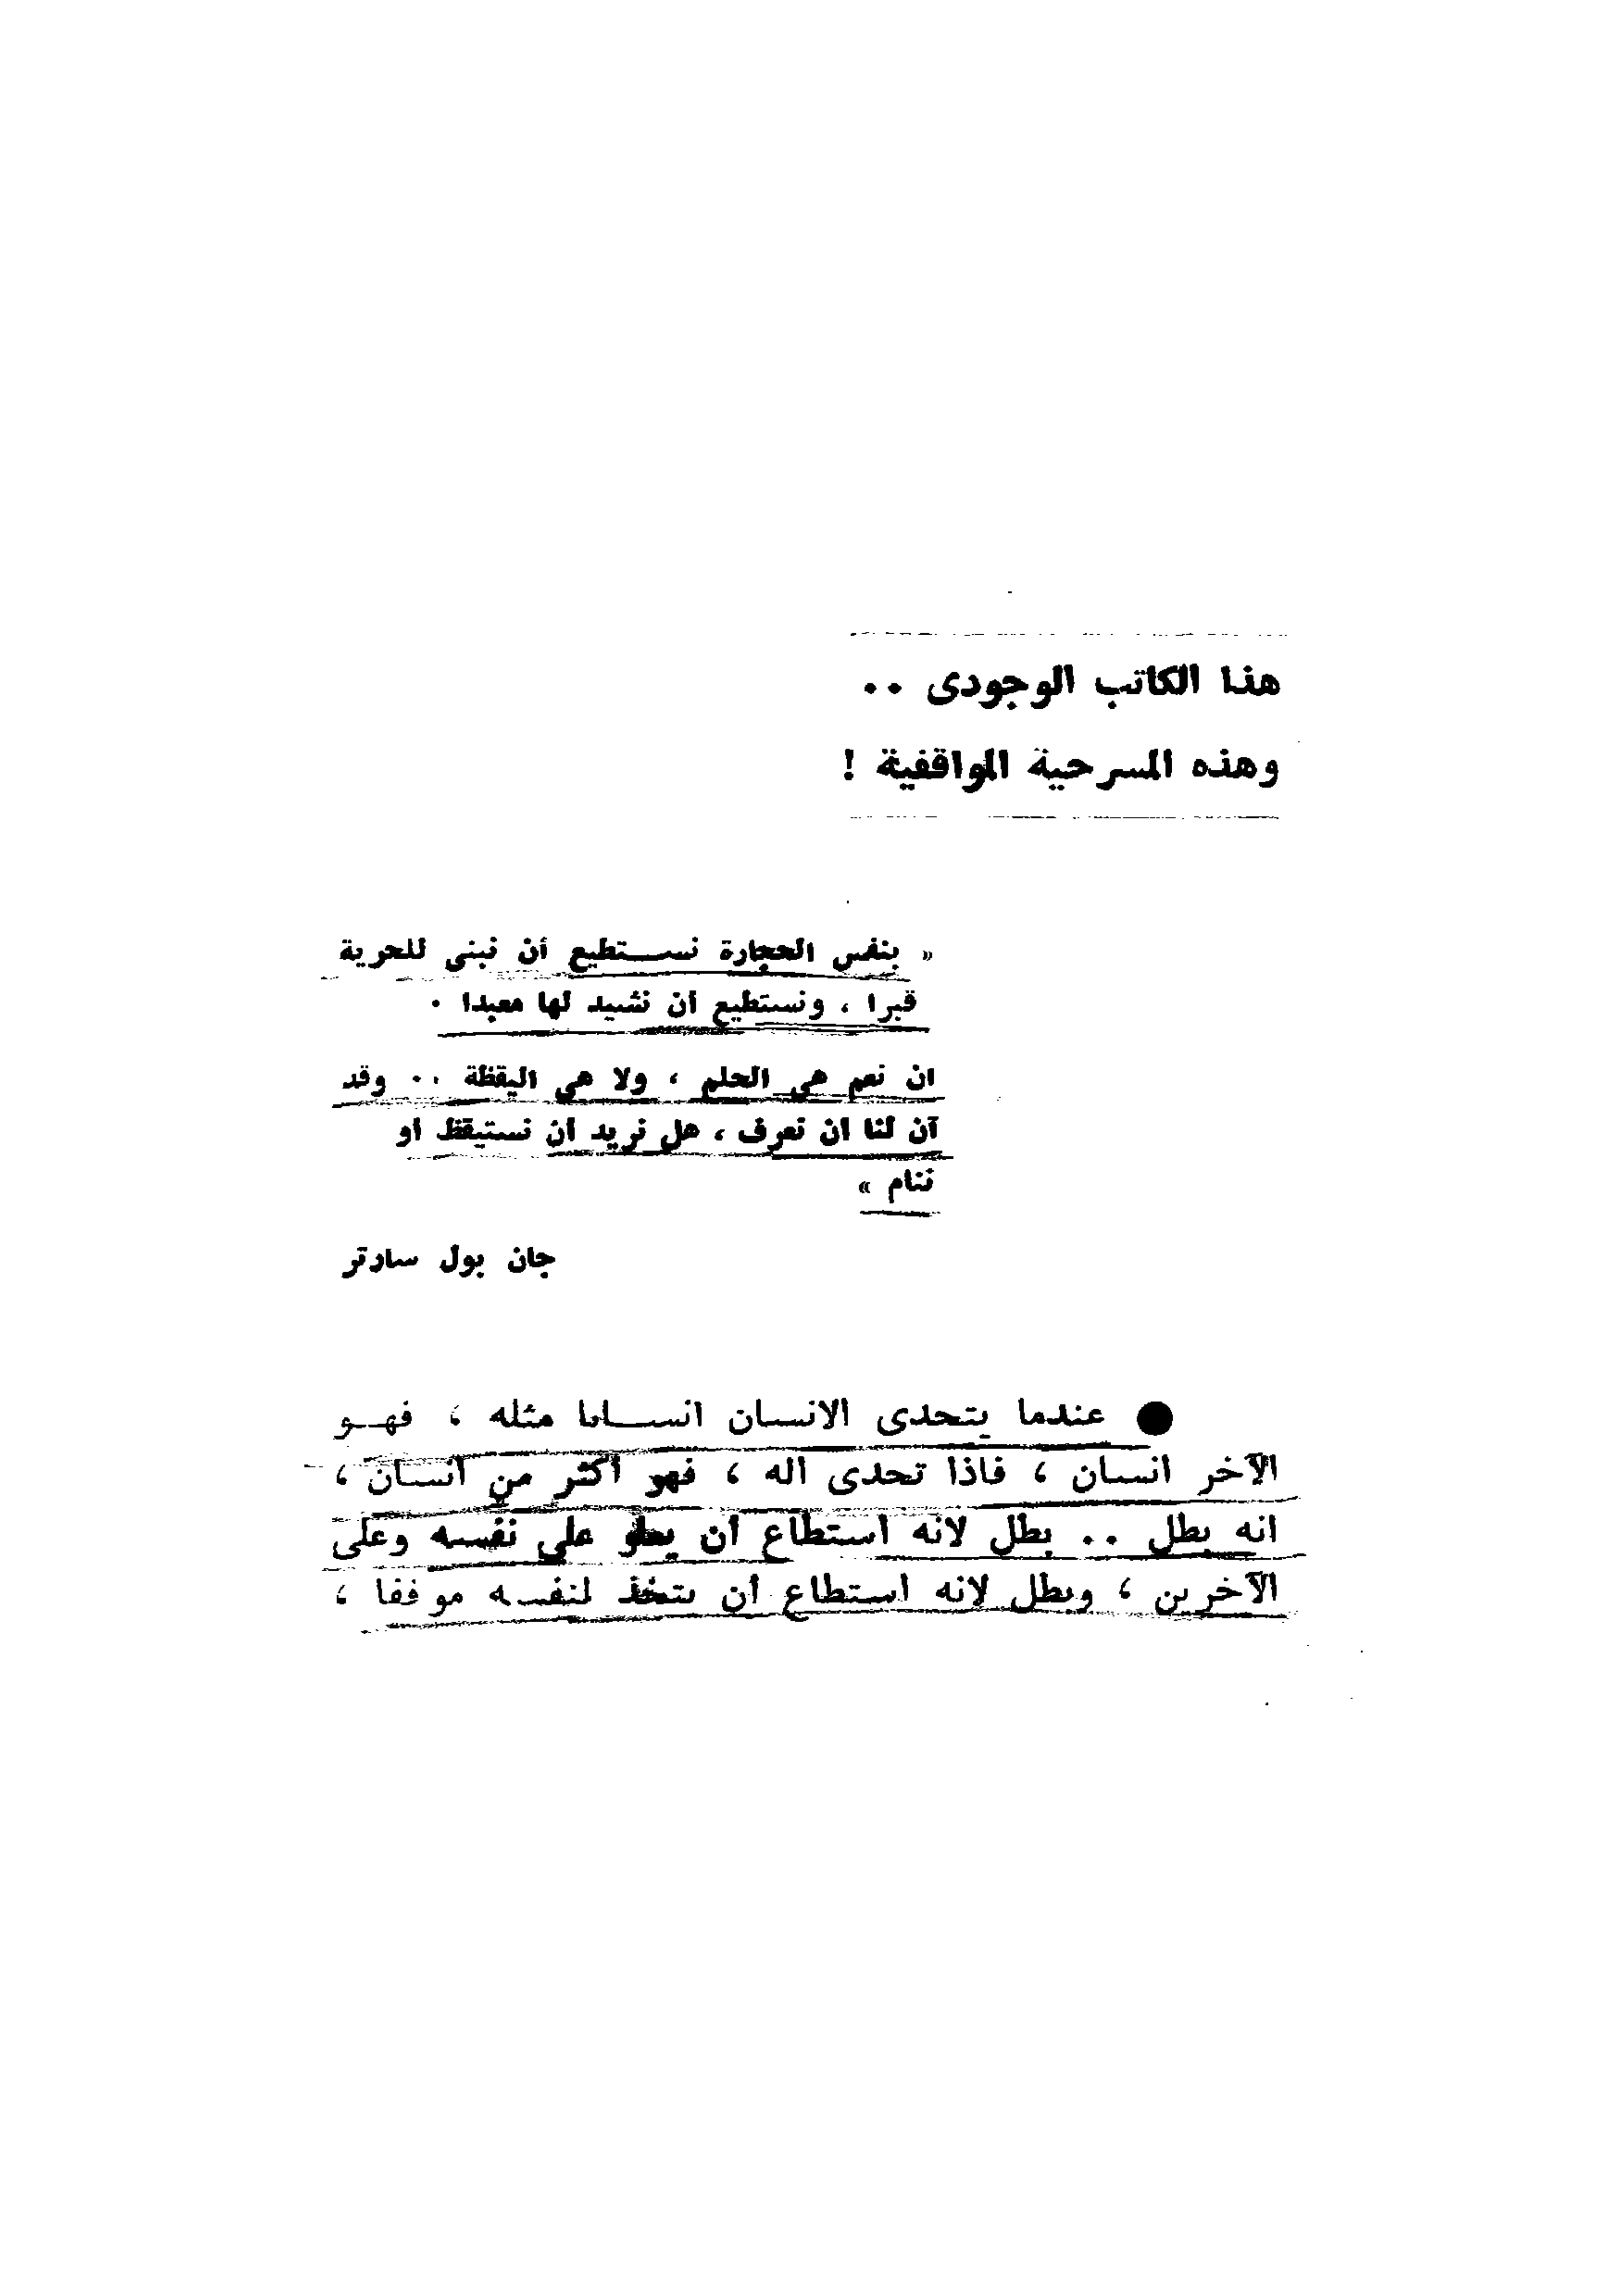 هذا الكاتب الوجودى ..
وهذه المسرحية المواقفية !
« بنفس الحجارة نستطيع أن نبنى للحرية
قبرا ، ونستطيع أن نشيد لها معبدا .
ان نعم هى الحلم ، ولا هى اليقظة .. وقد
آن لنا أن نعرف ، هل نريد أن نستيقظ أو
ننام »
جان بول سارتر
● عندما يتحدى الانسان انسانا مثله ، فهو
الآخر انسان ، فاذا تحدى اله ، فهو أكثر من انسان ،
انه بطل .. بطل لانه استطاع أن يعلو على نفسه وعلى
الآخرين ، وبطل لانه استطاع أن يتخذ لنفسه موقفا ،